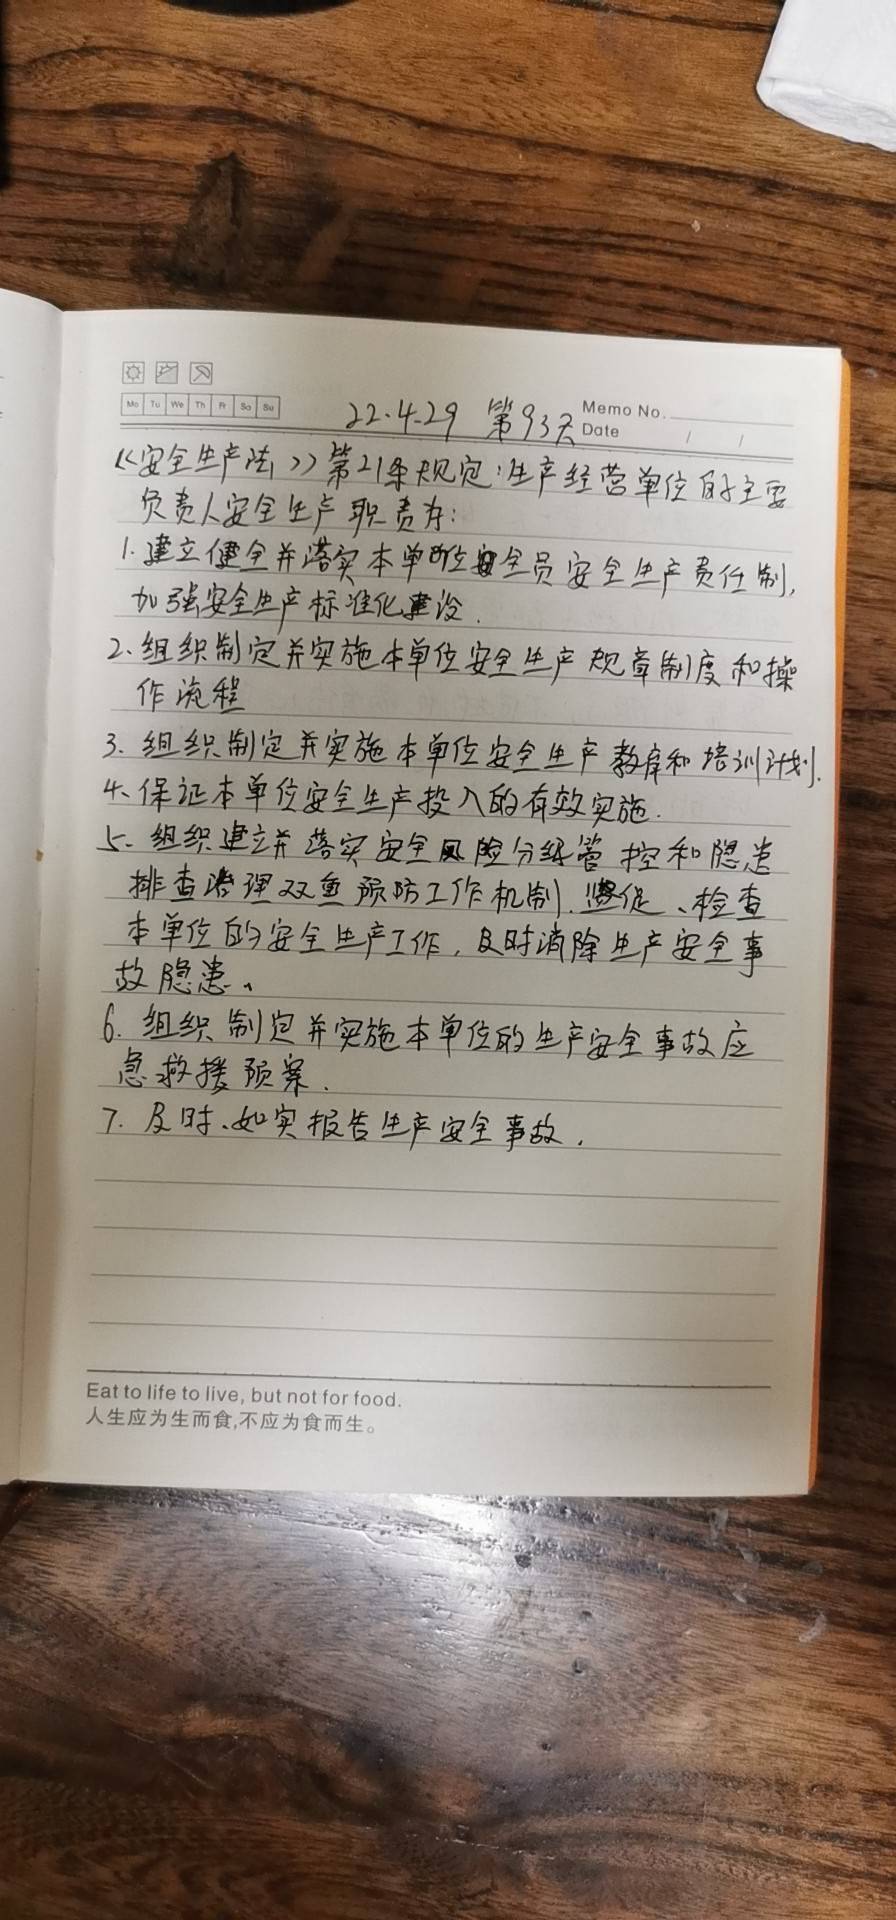 Mo Tu We Th Fr Sa Su
22.4.29 第93天
Memo No.
Date / /
《安全生产法》第21条规定：生产经营单位的主要
负责人安全生产职责有：
1.建立健全并落实本单位全员安全生产责任制,
加强安全生产标准化建设.
2.组织制定并实施本单位安全生产规章制度和操
作流程
3.组织制定并实施本单位安全生产教育和培训计划.
4、保证本单位安全生产投入的有效实施.
5、组织建立并落实安全风险分级管控和隐患
排查治理双重预防工作机制.督促、检查
本单位的安全生产工作,及时消除生产安全事
故隐患、
6.组织制定并实施本单位的生产安全事故应
急救援预案.
7.及时、如实报告生产安全事故.
Eat to life to live, but not for food.
人生应为生而食,不应为食而生。